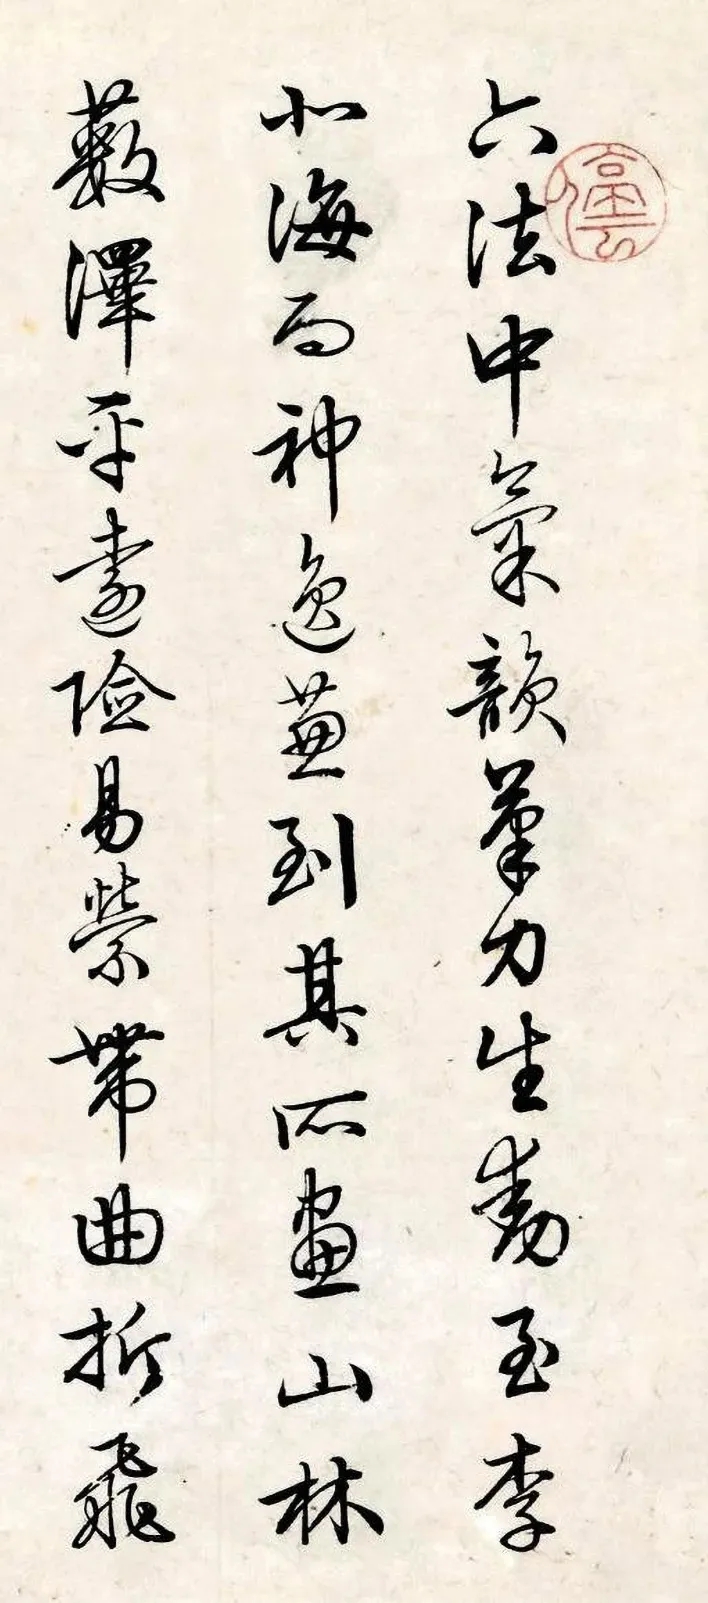 六法中氣韻筆力生動至李
北海而神逸兼到其所畫山林
藪澤平遠險易縈帶曲折飛
停雲